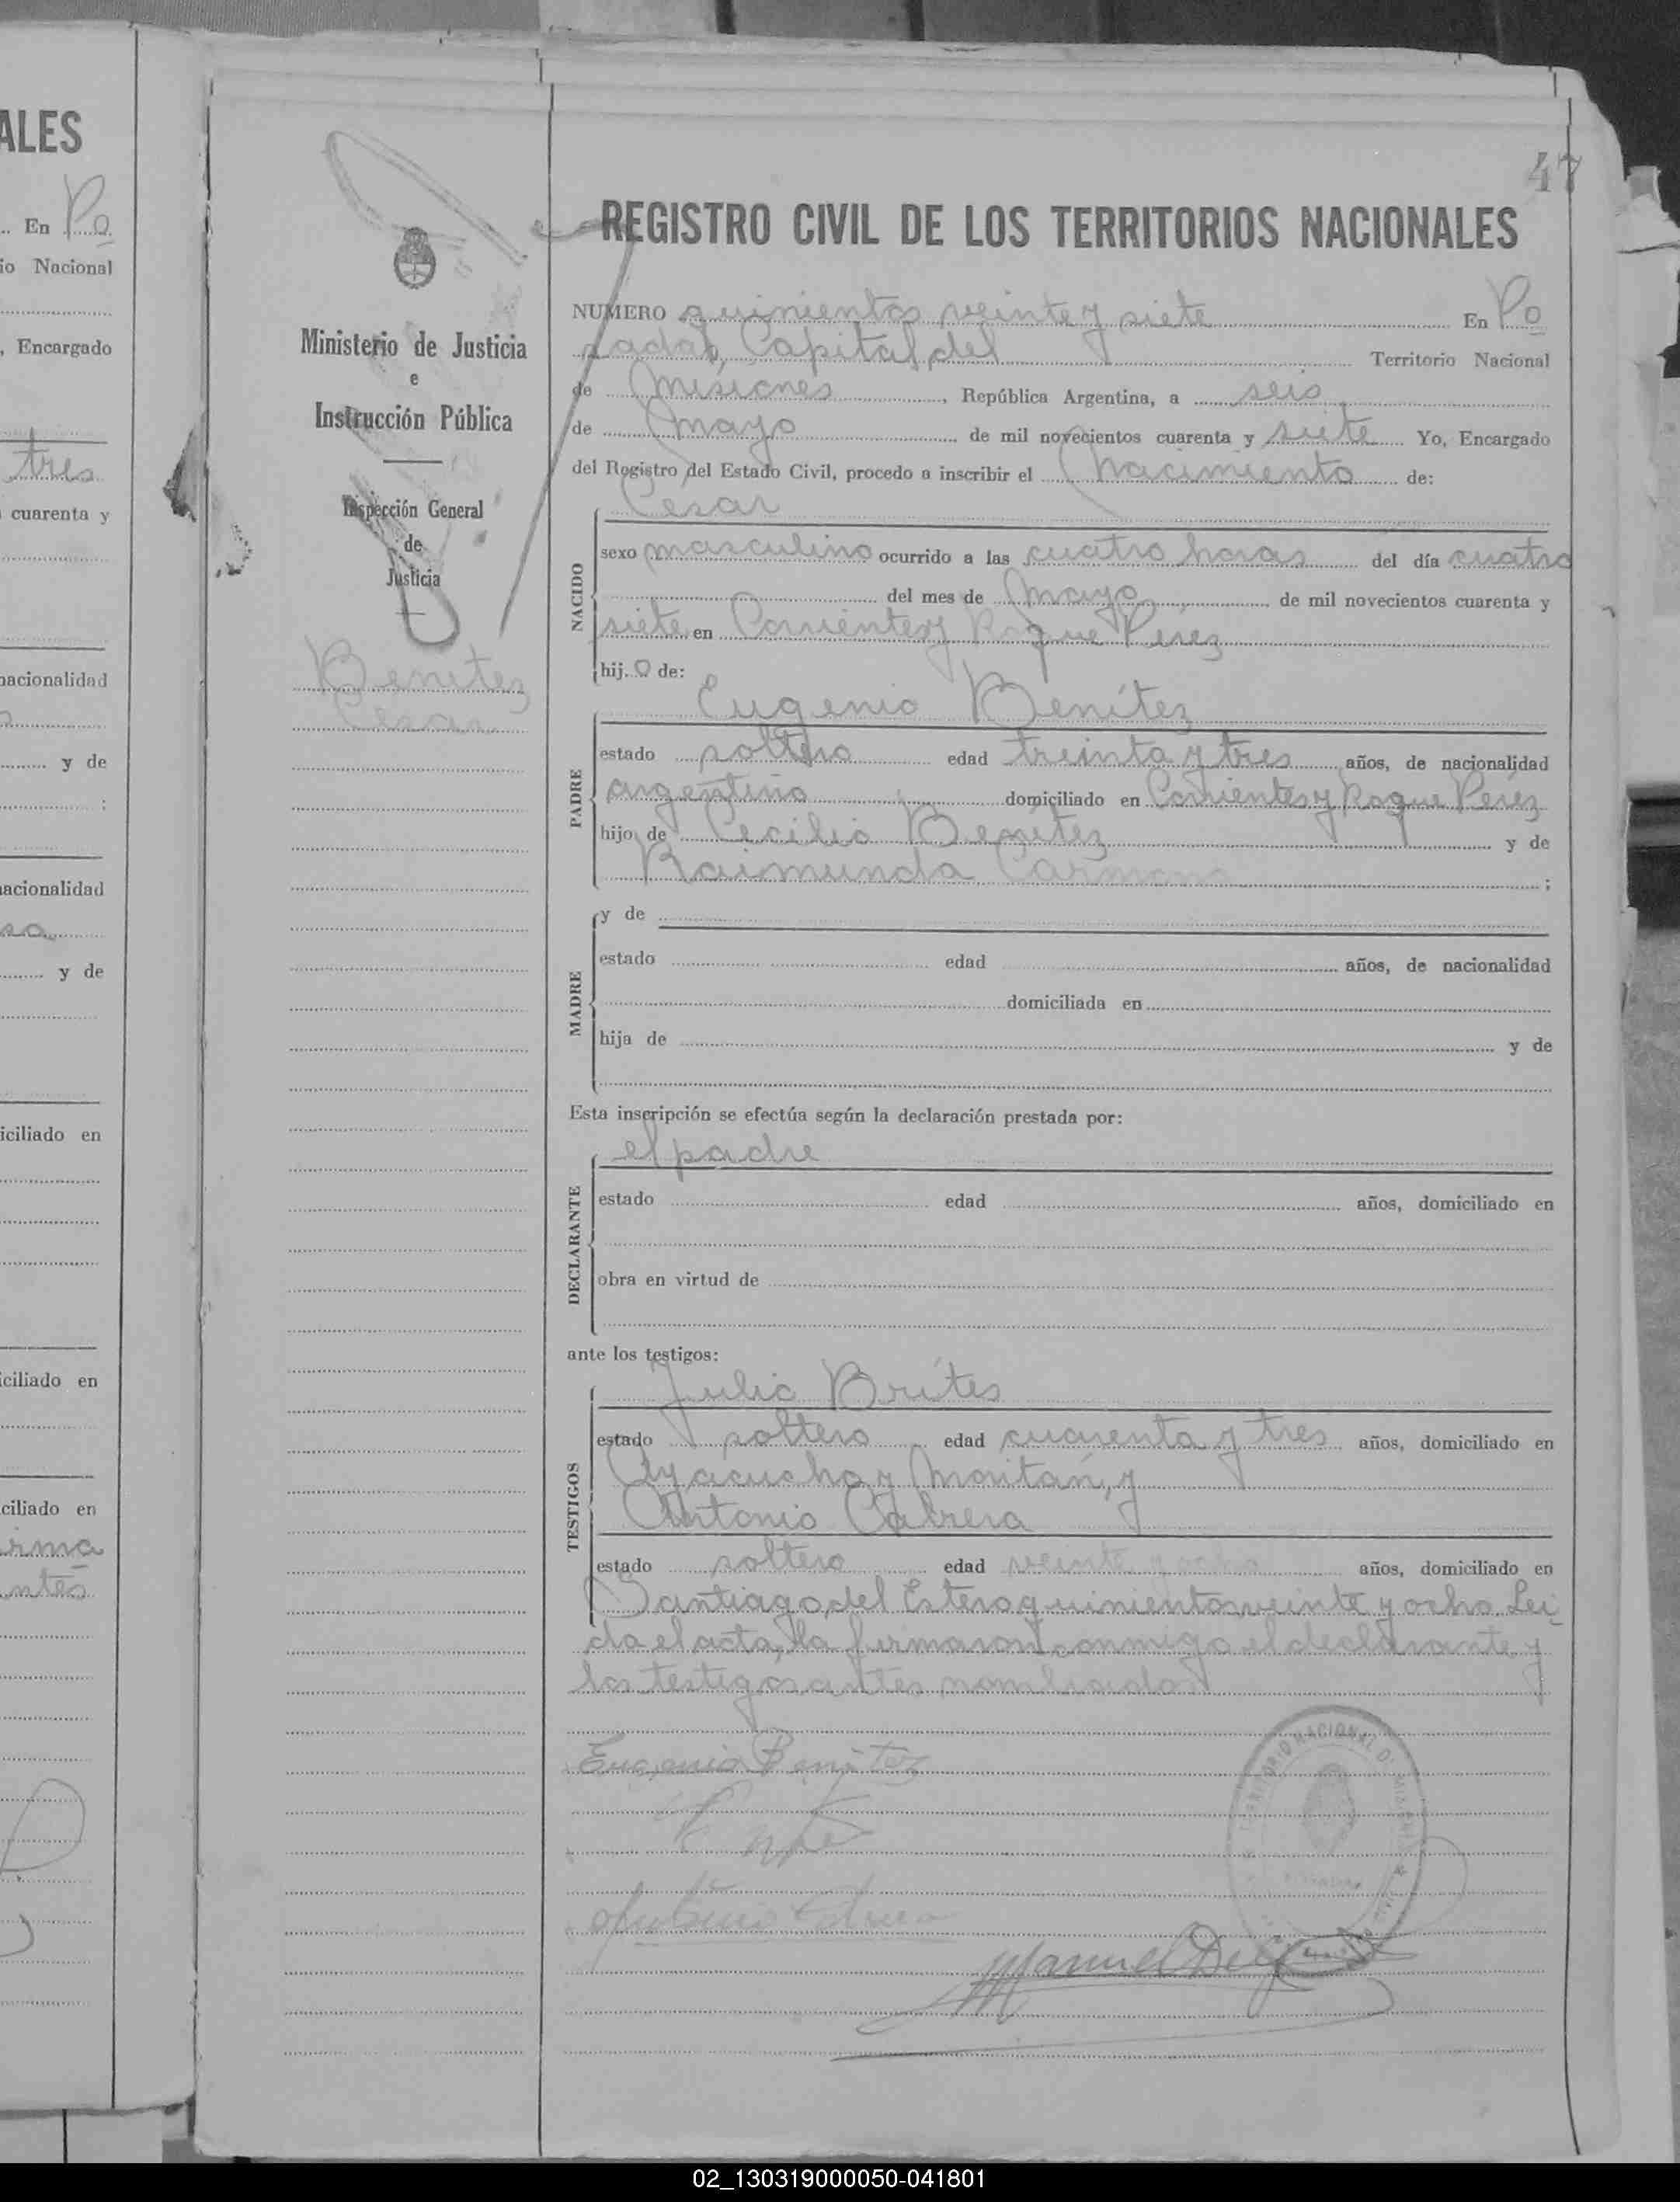 ALES
En Po
io Nacional
, Encargado
tres
cuarenta y
nacionalidad
y de
nacionalidad
sa
y de
iciliado en
iciliado en
ciliado en
irma
ntes
47
Ministerio de Justicia
e
Instrucción Pública
Inspección General
de
Justicia
Benitez
Cesar
REGISTRO CIVIL DE LOS TERRITORIOS NACIONALES
NUMERO quinientos veinte y siete En Po
sadas, Capital del Territorio Nacional
de Misiones, República Argentina, a seis
de Mayo de mil novecientos cuarenta y siete Yo, Encargado
del Registro del Estado Civil, procedo a inscribir el Nacimiento de:
Cesar
NACIDO
sexo masculino ocurrido a las cuatro horas del día cuatro
del mes de Mayo de mil novecientos cuarenta y
siete en Corrientes y Roque Pérez
hijo de:
Eugenio Benítez
PADRE
estado soltero edad treinta y tres años, de nacionalidad
argentino domiciliado en Corrientes y Roque Pérez
hijo de Cecilio Benítez y de
Raimunda ;
MADRE
y de
estado edad años, de nacionalidad
domiciliada en
hija de y de
Esta inscripción se efectúa según la declaración prestada por:
el padre
DECLARANTE
estado edad años, domiciliado en
obra en virtud de
ante los testigos:
Julio Brítes
TESTIGOS
estado soltero edad cuarenta y tres años, domiciliado en
Ayacucho y Moritán, y
Antonio Cabrera
estado soltero edad veinte y ocho años, domiciliado en
Santiago del Estero quinientos veinte y ocho. Lei
da el acta, la firmaron conmigo el declarante y
los testigos antes nombrados
Eugenio Benitez
Manuel
02_130319000050-041801